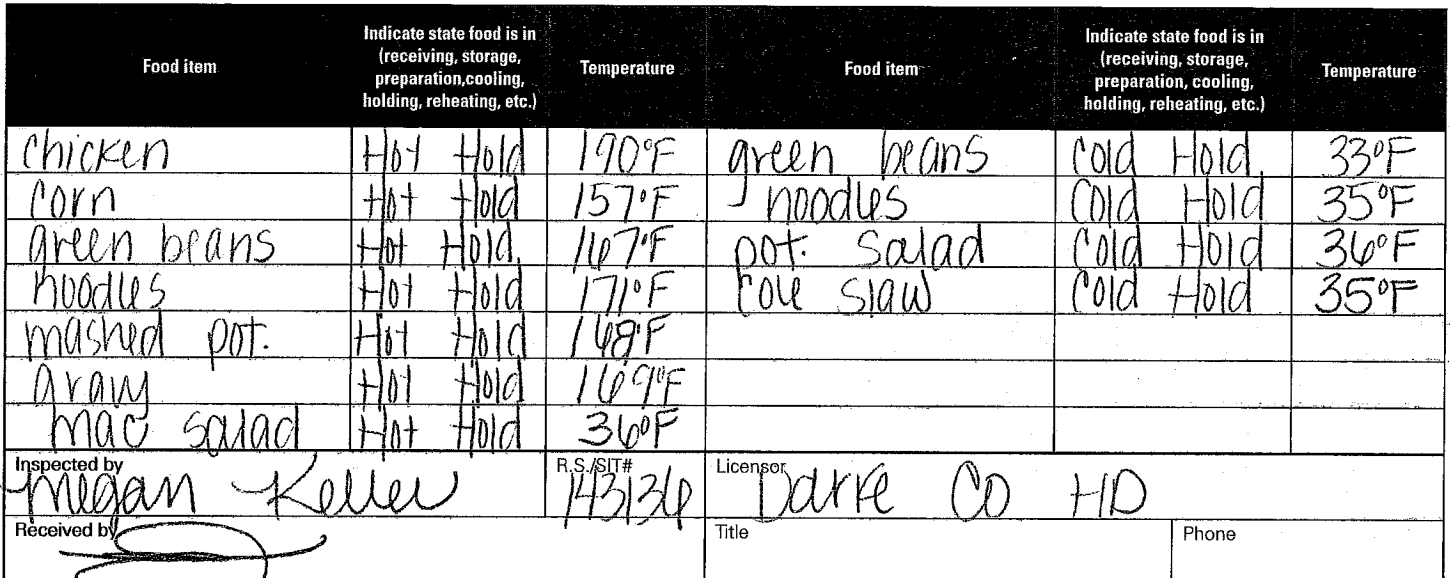 Food item | Indicate state food is in (receiving, storage, preparation,cooling, holding, reheating, etc.) | Temperature | Food item | Indicate state food is in (receiving, storage, preparation, cooling, holding, reheating, etc.) | Temperature
chicken | Hot Hold | 190°F | green beans | Cold Hold | 33°F
corn | Hot Hold | 157°F | noodles | Cold Hold | 35°F
green beans | Hot Hold | 167°F | pot. salad | Cold Hold | 36°F
noodles | Hot Hold | 171°F | cole slaw | Cold Hold | 35°F
mashed pot. | Hot Hold | 168°F
gravy | Hot Hold | 169°F
mac salad | Hot Hold | 36°F
Inspected by Megan Keller | R.S./SIT# 143136 | Licensor Darke Co HD
Received by | Title | Phone